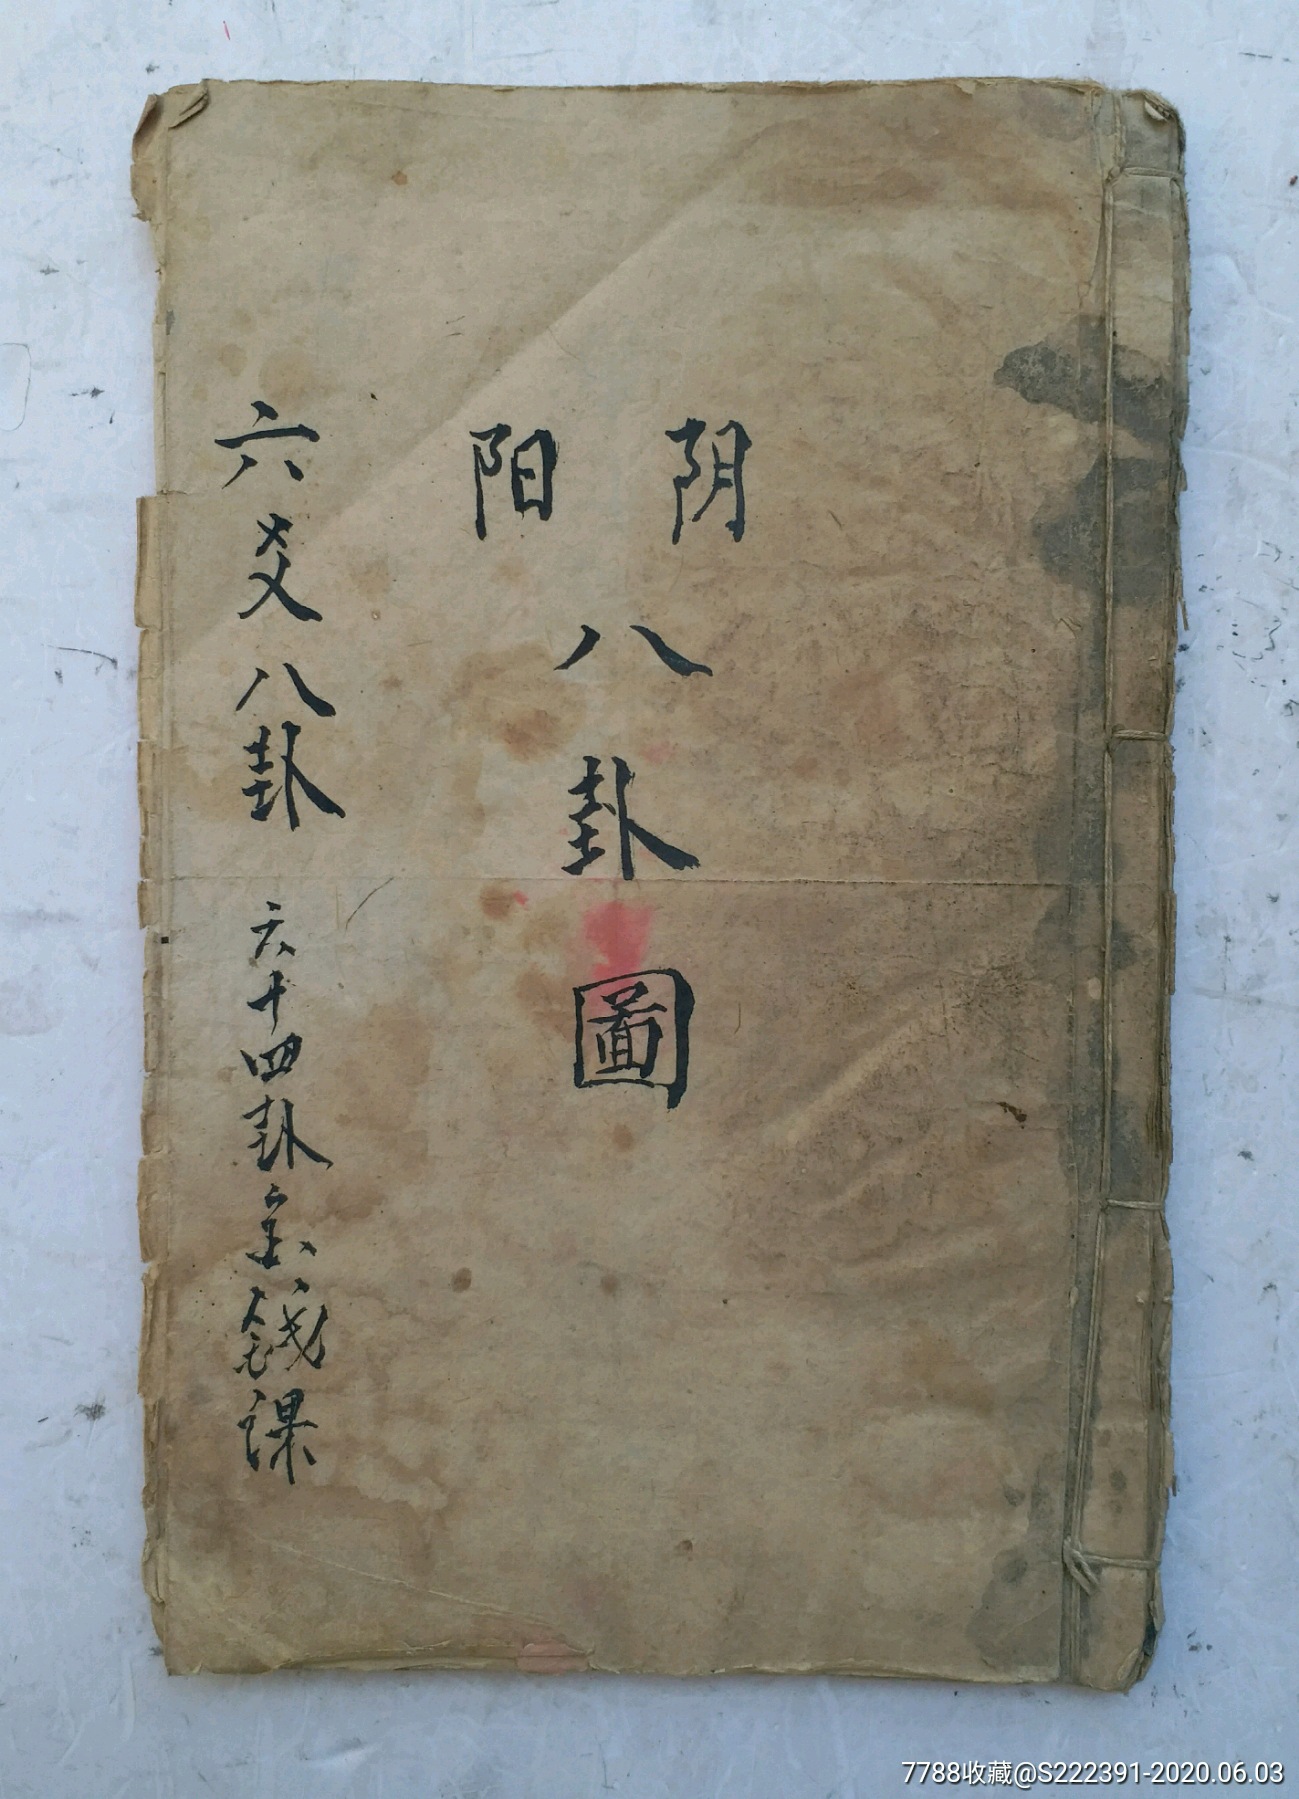 阴阳
八卦圖
六爻八卦 六十四卦金錢課
7788收藏@S222391-2020.06.03